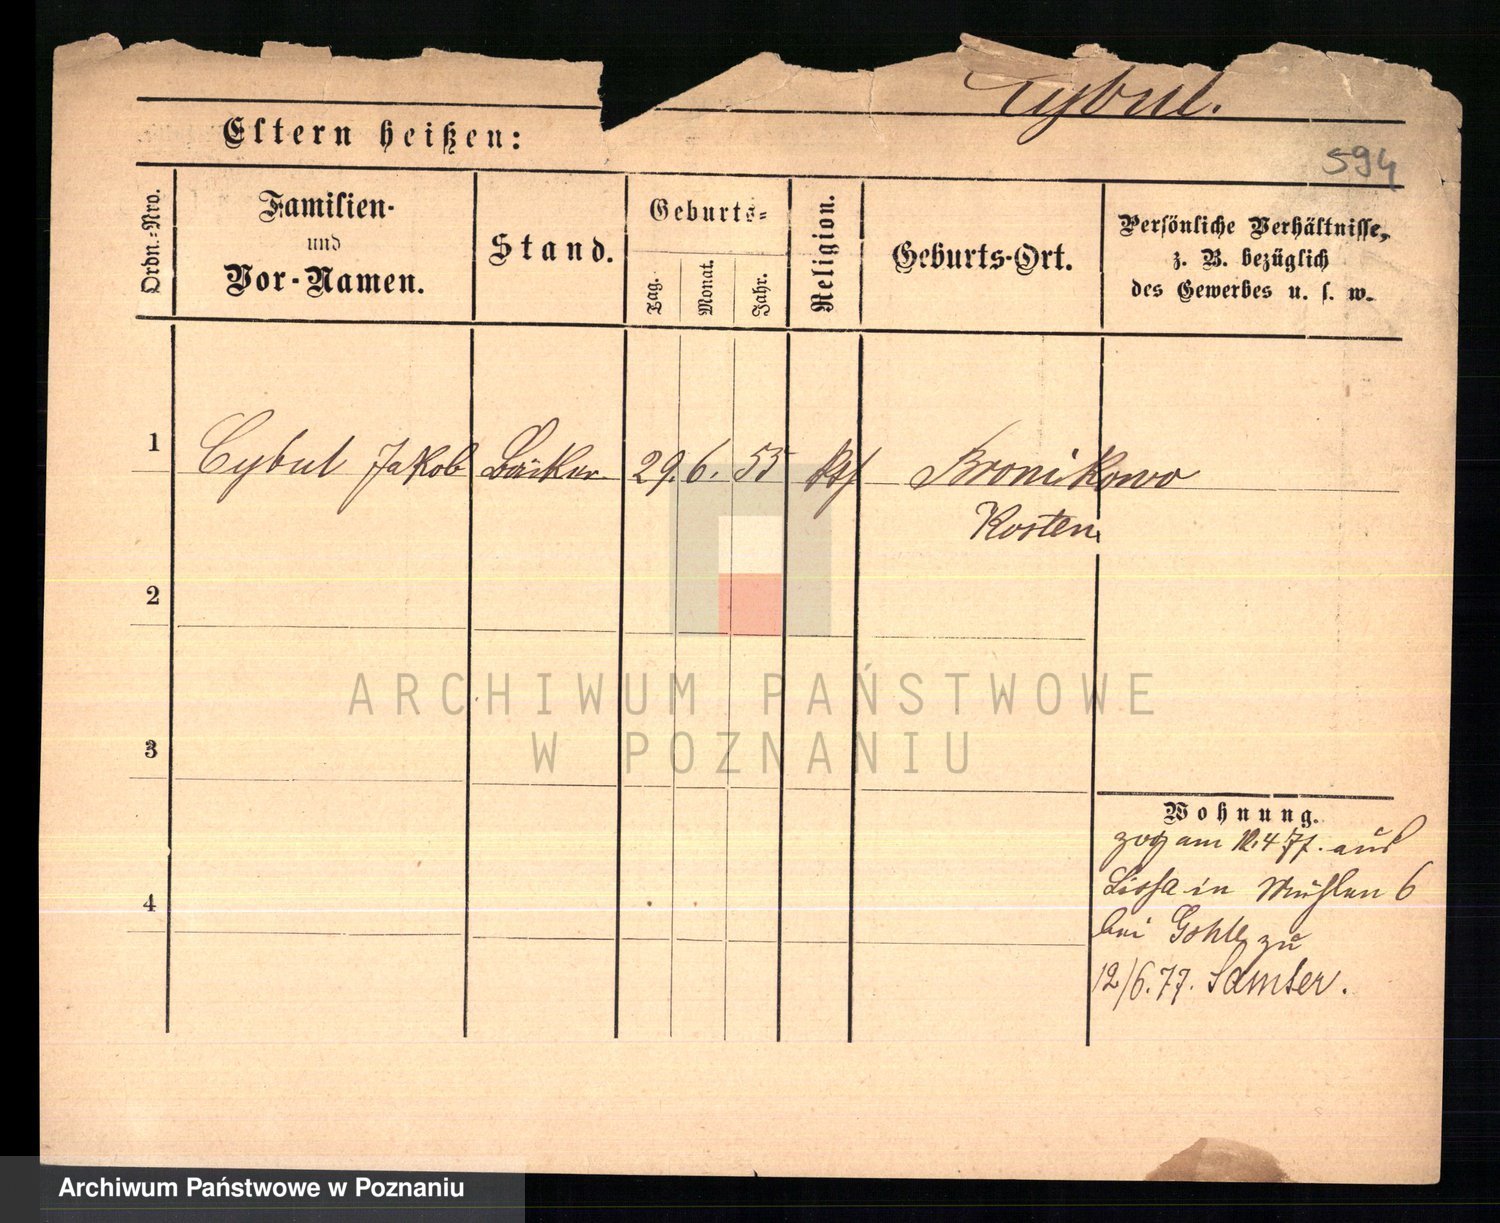 Cybul.
Eltern heißen:
594
Ordn.-Nro.
Familien-
und
Vor-Namen.
Stand.
Geburts-
Tag.
Monat.
Jahr.
Religion.
Geburts-Ort.
Persönliche Verhältnisse,
z. B. bezüglich
des Gewerbes u. s. w.
1 Cybul Jakob Bäcker 29. 6. 55 Bronikowo
Kosten
2
3
4
Wohnung.
zog am 12.4 77. aus
Lissa in Mühlen 6
bei Gohle zu
12/6.77. Samter.
ARCHIWUM PAŃSTWOWE
W POZNANIU
Archiwum Państwowe w Poznaniu